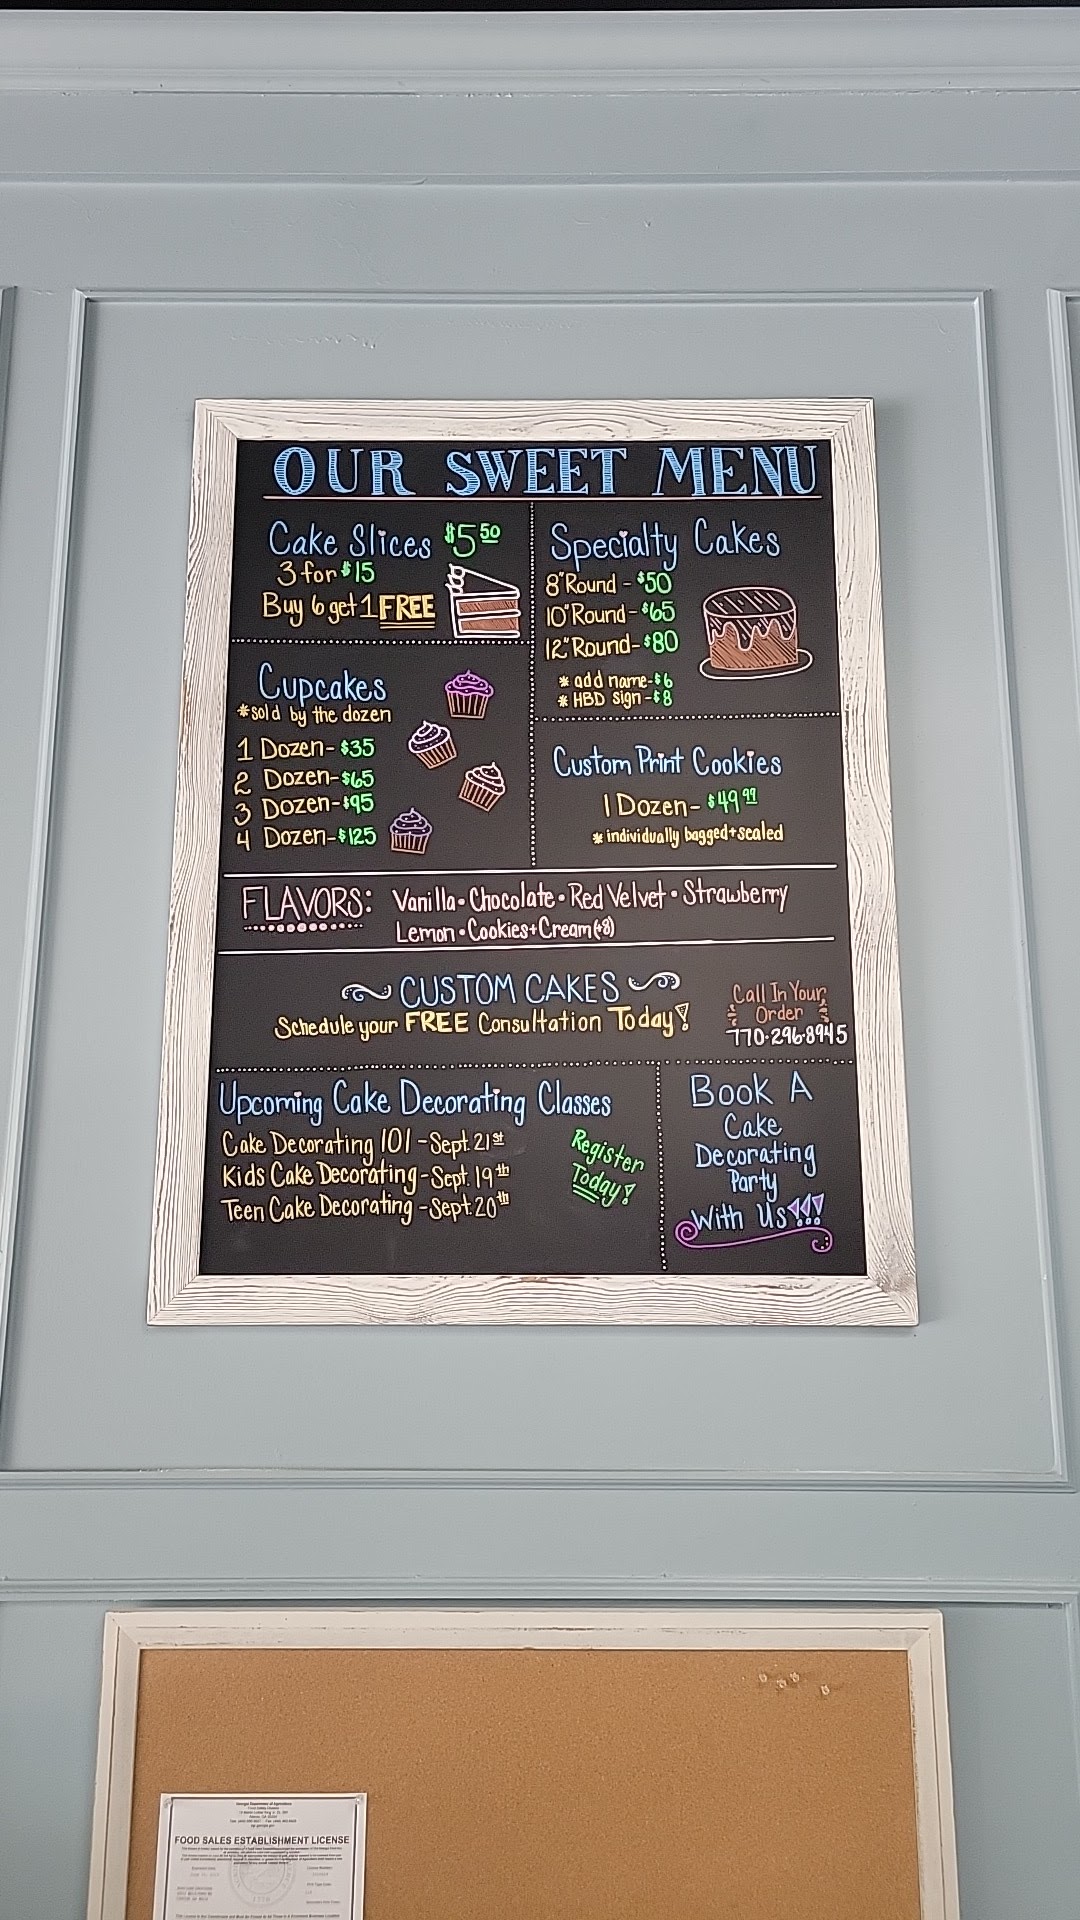 OUR SWEET MENU
Cake Slices $5.50
3 for $15
Buy 6 get 1 FREE
Cupcakes
*sold by the dozen
1 Dozen-$35
2 Dozen-$65
3 Dozen-$95
4 Dozen-$125
Specialty Cakes
8" Round - $50
10" Round - $65
12" Round - $80
* add name-$6
* HBD sign -$8
Custom Print Cookies
1 Dozen - $49.99
* individually bagged+sealed
FLAVORS: Vanilla • Chocolate • Red Velvet • Strawberry
Lemon • Cookies+Cream(+8)
CUSTOM CAKES
Schedule your FREE Consultation Today!
Call In Your
Order
770·296·8945
Upcoming Cake Decorating Classes
Cake Decorating 101 - Sept. 21st
Kids Cake Decorating - Sept. 19th
Teen Cake Decorating - Sept. 20th
Register
Today!
Book A
Cake
Decorating
Party
With Us!!!
Georgia Department of Agriculture
FOOD SALES ESTABLISHMENT LICENSE